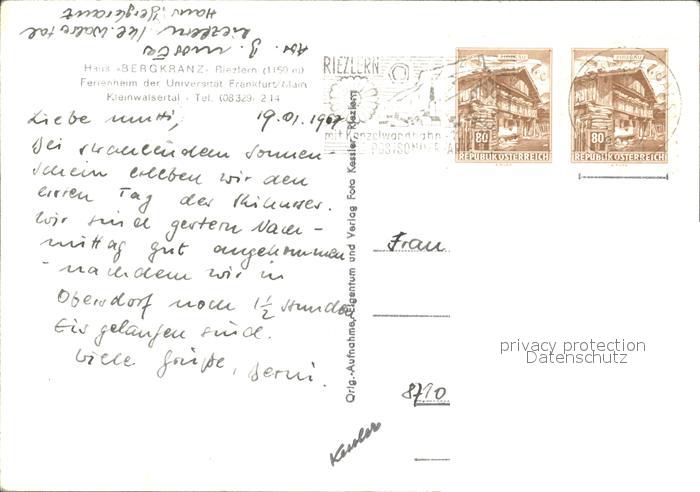 Haus Bergkranz
Riezlern / Kl. Walsertal
Abs.
Haus «BERGKRANZ» Riezlern (1150 m)
Ferienheim der Universität Frankfurt/Main
Kleinwalsertal - Tel. (08329) 214
Liebe Mutti, 19.01.1967
Bei strahlendem Sonnen-
schein erleben wir den
ersten Tag des Skikurses.
Wir sind gestern Nach-
mittag gut angekommen
nachdem wir in
Oberstdorf noch 1½ Stunden
Eis gelaufen sind.
Viele Grüße, Berni.
Orig.-Aufnahme, Eigentum und Verlag Foto Kessler, Riezlern
RIEZLERN
mit Kanzelwandbahn
80 g
REPUBLIK ÖSTERREICH
80 g
REPUBLIK ÖSTERREICH
Frau
8710
Kessler
privacy protection
Datenschutz